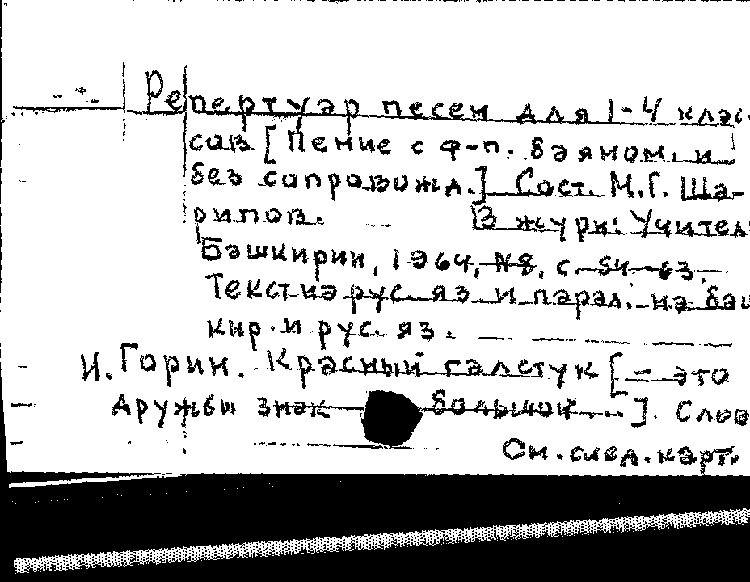 Репертуар песен для 1-4 клас-
сов [Пение с ф-п. баяном, и
без сопровожд.] Сост. М.Г. Ша-
рипов. В журн: Учитель
Башкирии, 1964, №8, с. 54-63.
Текст на рус. яз и парал. на баш
кир. и рус. яз.
И. Горин. Красный галстук [- это
дружбы знак большой...]. Слова
См. след. карт.